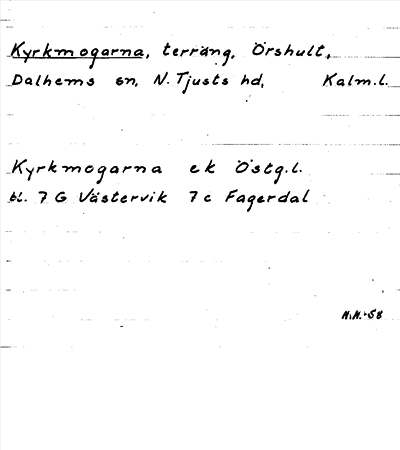 Kyrkmogarna, terräng, Örshult,
Dalhems sn, N. Tjusts hd, Kalm.l.
Kyrkmogarna ek Östg.l.
bl. 7 G Västervik 7 c Fagerdal
N.N.-58